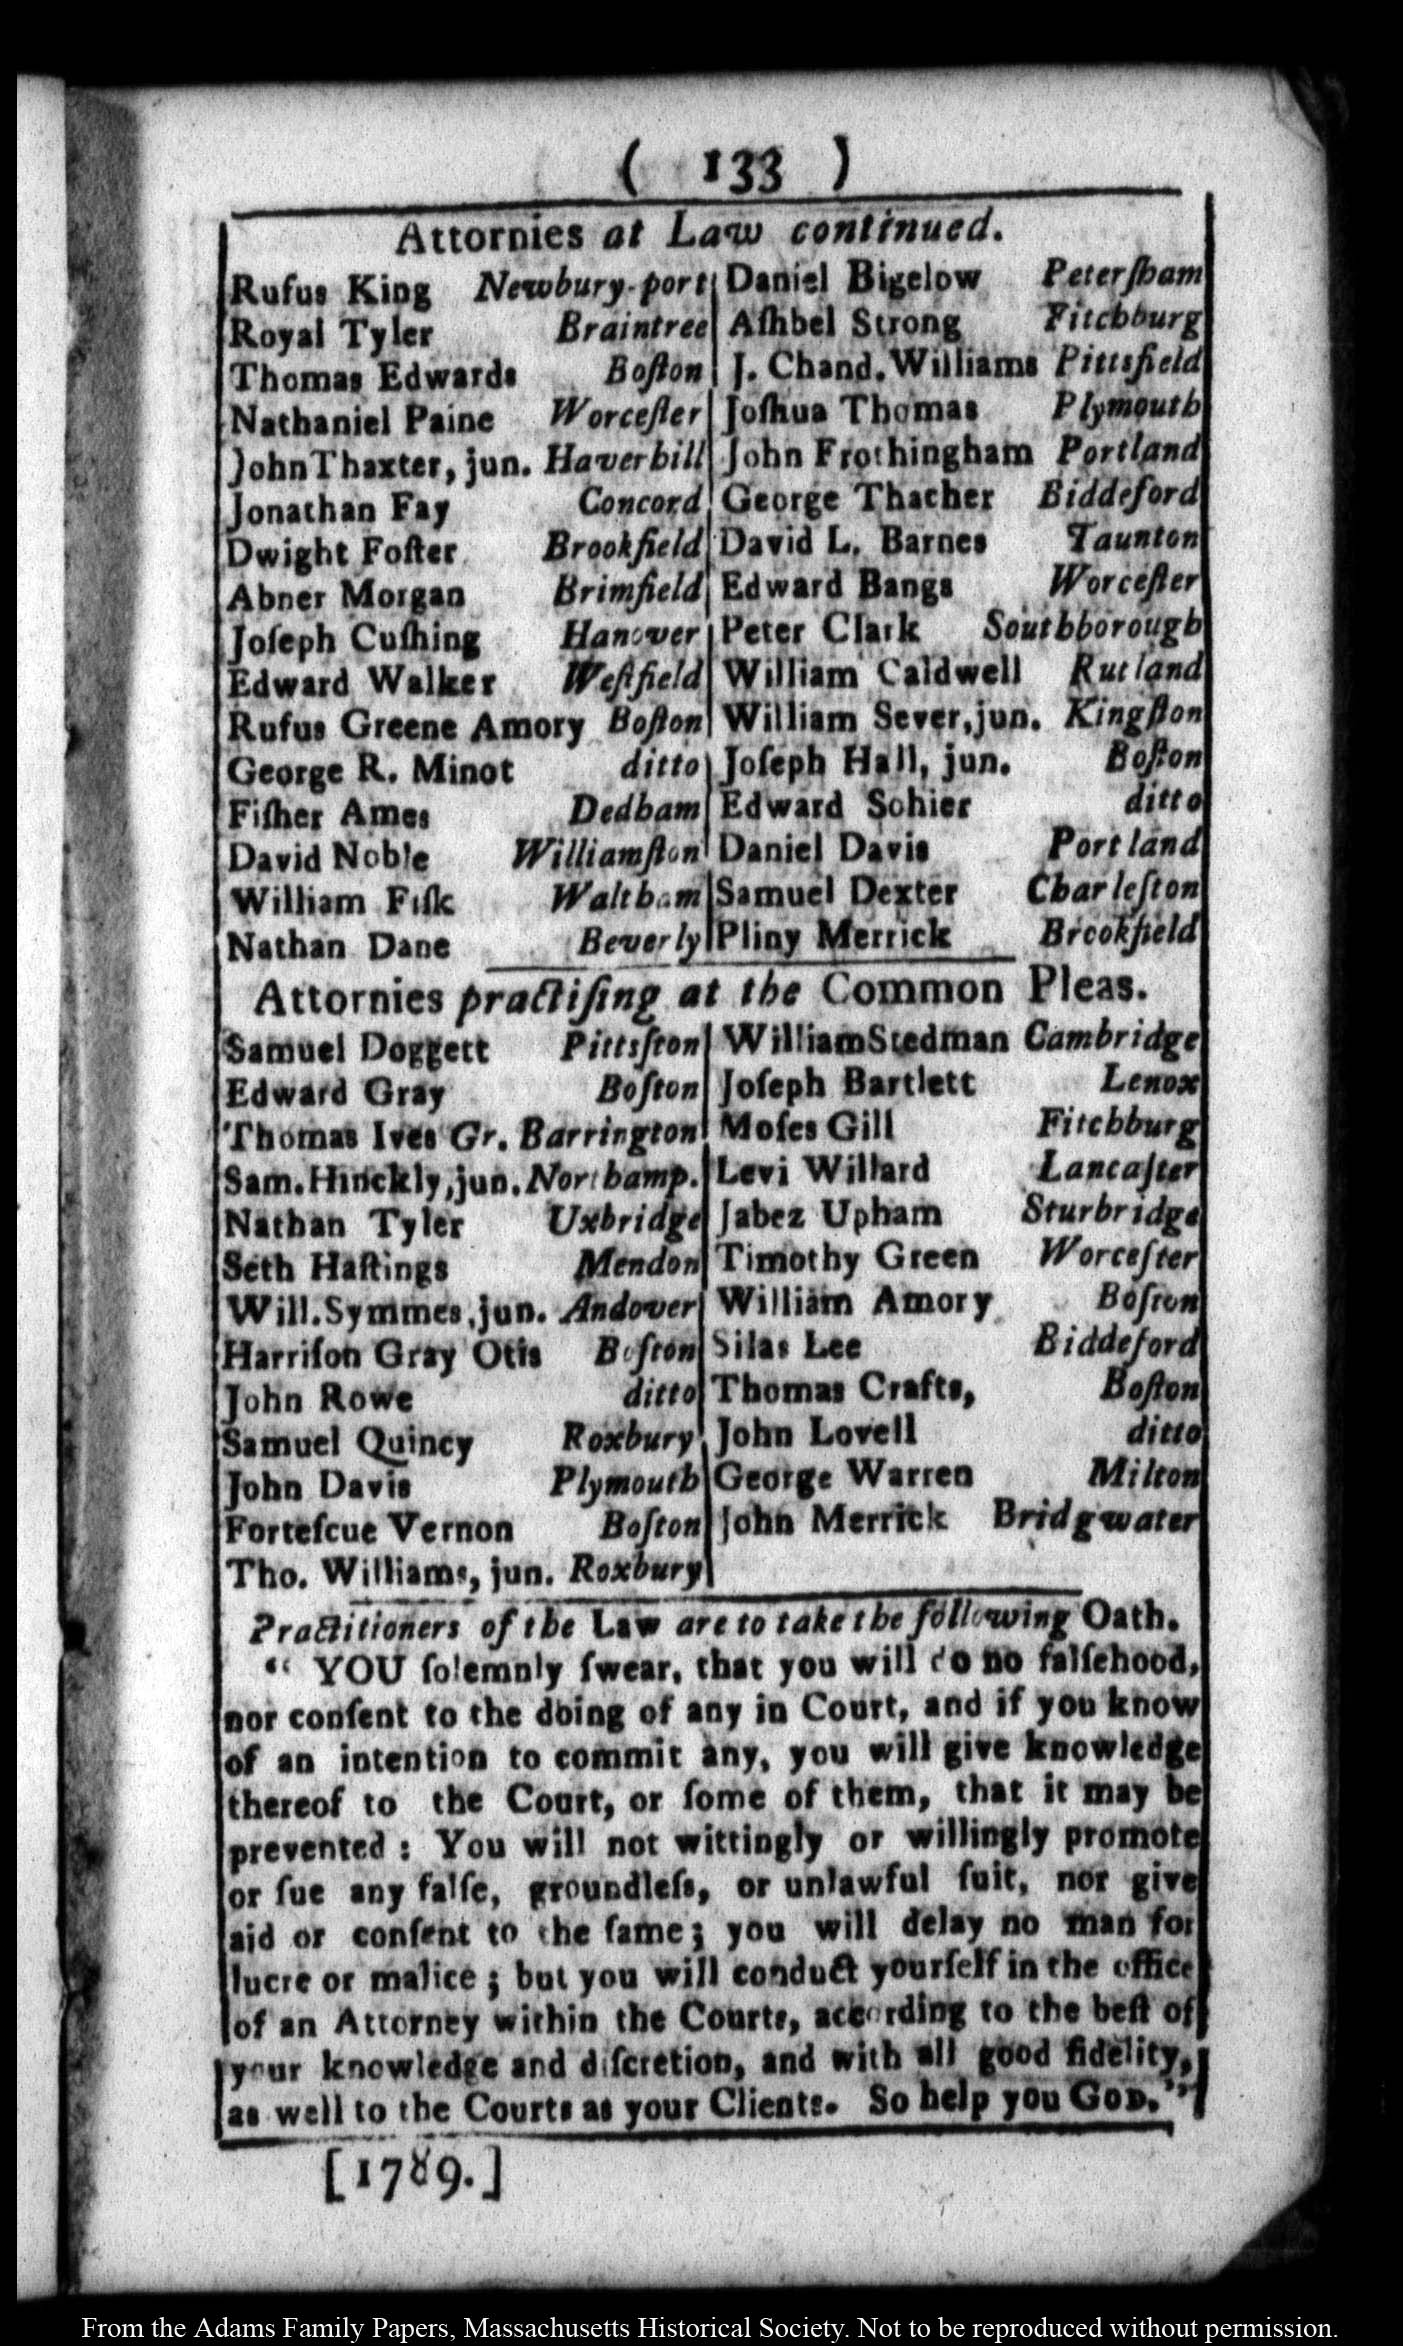 ( 133 )
Attornies at Law continued.
Rufus King Newbury-port
Royal Tyler Braintree
Thomas Edwards Boſton
Nathaniel Paine Worceſter
John Thaxter, jun. Haverhill
Jonathan Fay Concord
Dwight Foſter Brookfield
Abner Morgan Brimfield
Joſeph Cuſhing Hanover
Edward Walker Weſtfield
Rufus Greene Amory Boſton
George R. Minot ditto
Fiſher Ames Dedham
David Noble Williamſton
William Fiſk Waltham
Nathan Dane Beverly
Daniel Bigelow Peterſham
Aſhbel Strong Fitchburg
J. Chand. Williams Pittsfield
Joſhua Thomas Plymouth
John Frothingham Portland
George Thacher Biddeford
David L. Barnes Taunton
Edward Bangs Worceſter
Peter Clark Southborough
William Caldwell Rutland
William Sever, jun. Kingſton
Joſeph Hall, jun. Boſton
Edward Sohier ditto
Daniel Davis Portland
Samuel Dexter Charleſton
Pliny Merrick Brookfield
Attornies practiſing at the Common Pleas.
Samuel Doggett Pittsſton
Edward Gray Boſton
Thomas Ives Gr. Barrington
Sam. Hinckly, jun. Northamp.
Nathan Tyler Uxbridge
Seth Haſtings Mendon
Will. Symmes, jun. Andover
Harriſon Gray Otis Boſton
John Rowe ditto
Samuel Quincy Roxbury
John Davis Plymouth
Forteſcue Vernon Boſton
Tho. Williams, jun. Roxbury
William Stedman Cambridge
Joſeph Bartlett Lenox
Moſes Gill Fitchburg
Levi Willard Lancaſter
Jabez Upham Sturbridge
Timothy Green Worceſter
William Amory Boſton
Silas Lee Biddeford
Thomas Crafts, Boſton
John Lovell ditto
George Warren Milton
John Merrick Bridgwater
Practitioners of the Law are to take the following Oath.
“ YOU ſolemnly ſwear, that you will do no falſehood,
nor conſent to the doing of any in Court, and if you know
of an intention to commit any, you will give knowledge
thereof to the Court, or ſome of them, that it may be
prevented : You will not wittingly or willingly promote
or ſue any falſe, groundleſs, or unlawful ſuit, nor give
aid or conſent to the ſame ; you will delay no man for
lucre or malice ; but you will conduct yourſelf in the office
of an Attorney within the Courts, according to the beſt of
your knowledge and diſcretion, and with all good fidelity,
as well to the Courts as your Clients. So help you GOD.”
[1789.]
From the Adams Family Papers, Massachusetts Historical Society. Not to be reproduced without permission.